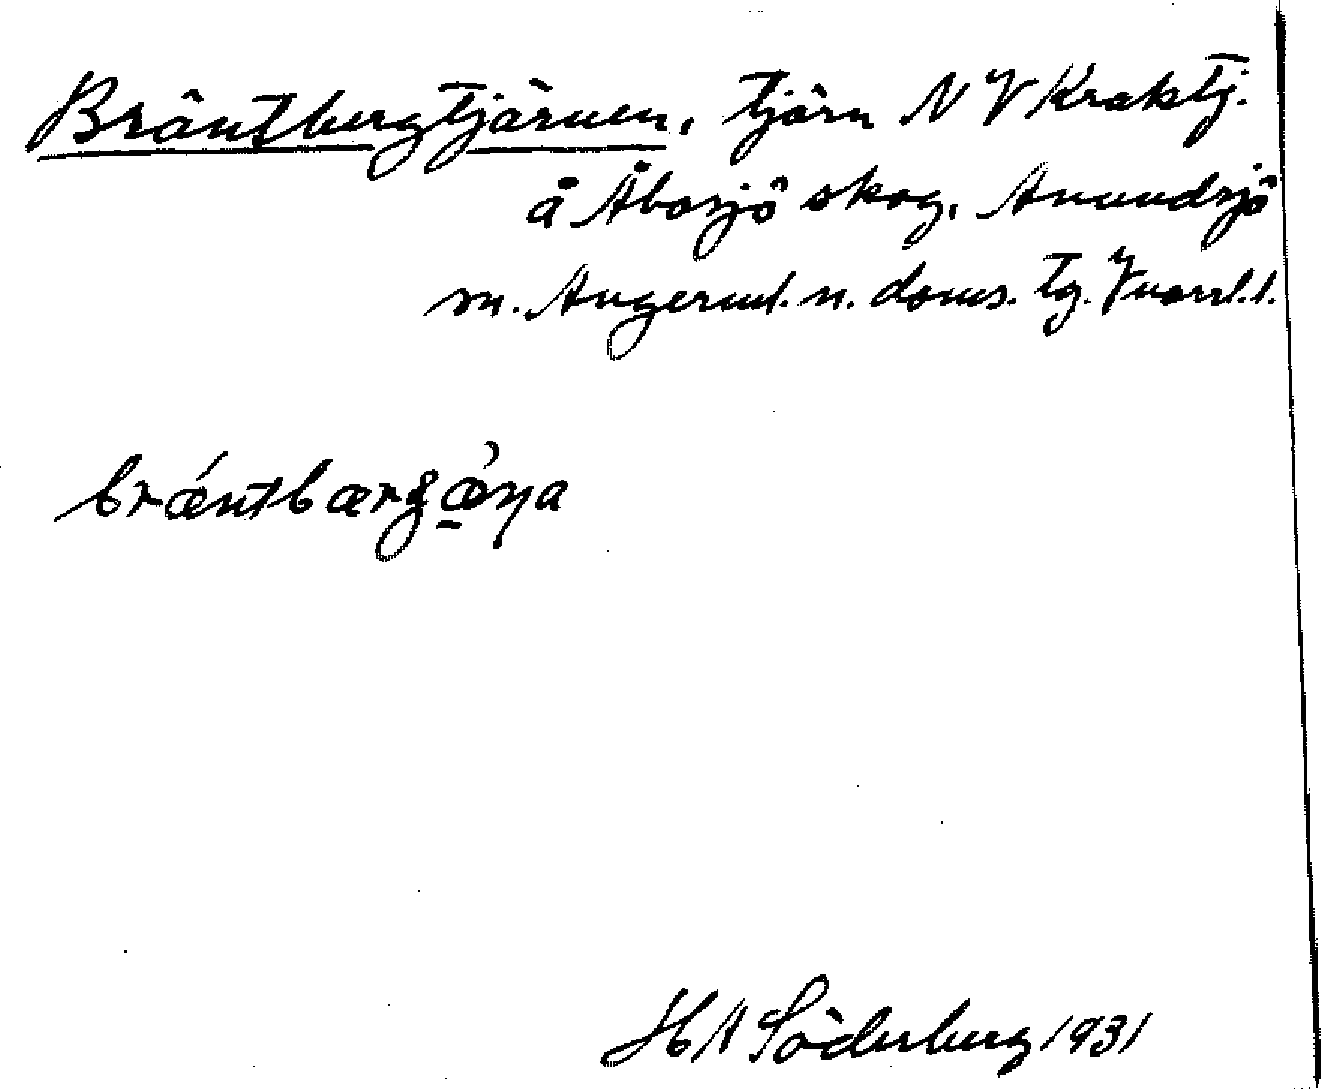 Bräntbergtjärnen, tjärn N V Kraktj.
å Åbosjö skog, Anundsjö
sn. Ångerml. n. doms. tg. Vnorrl. l.
brǽntbærgǽŋa
HA Söderberg 1931